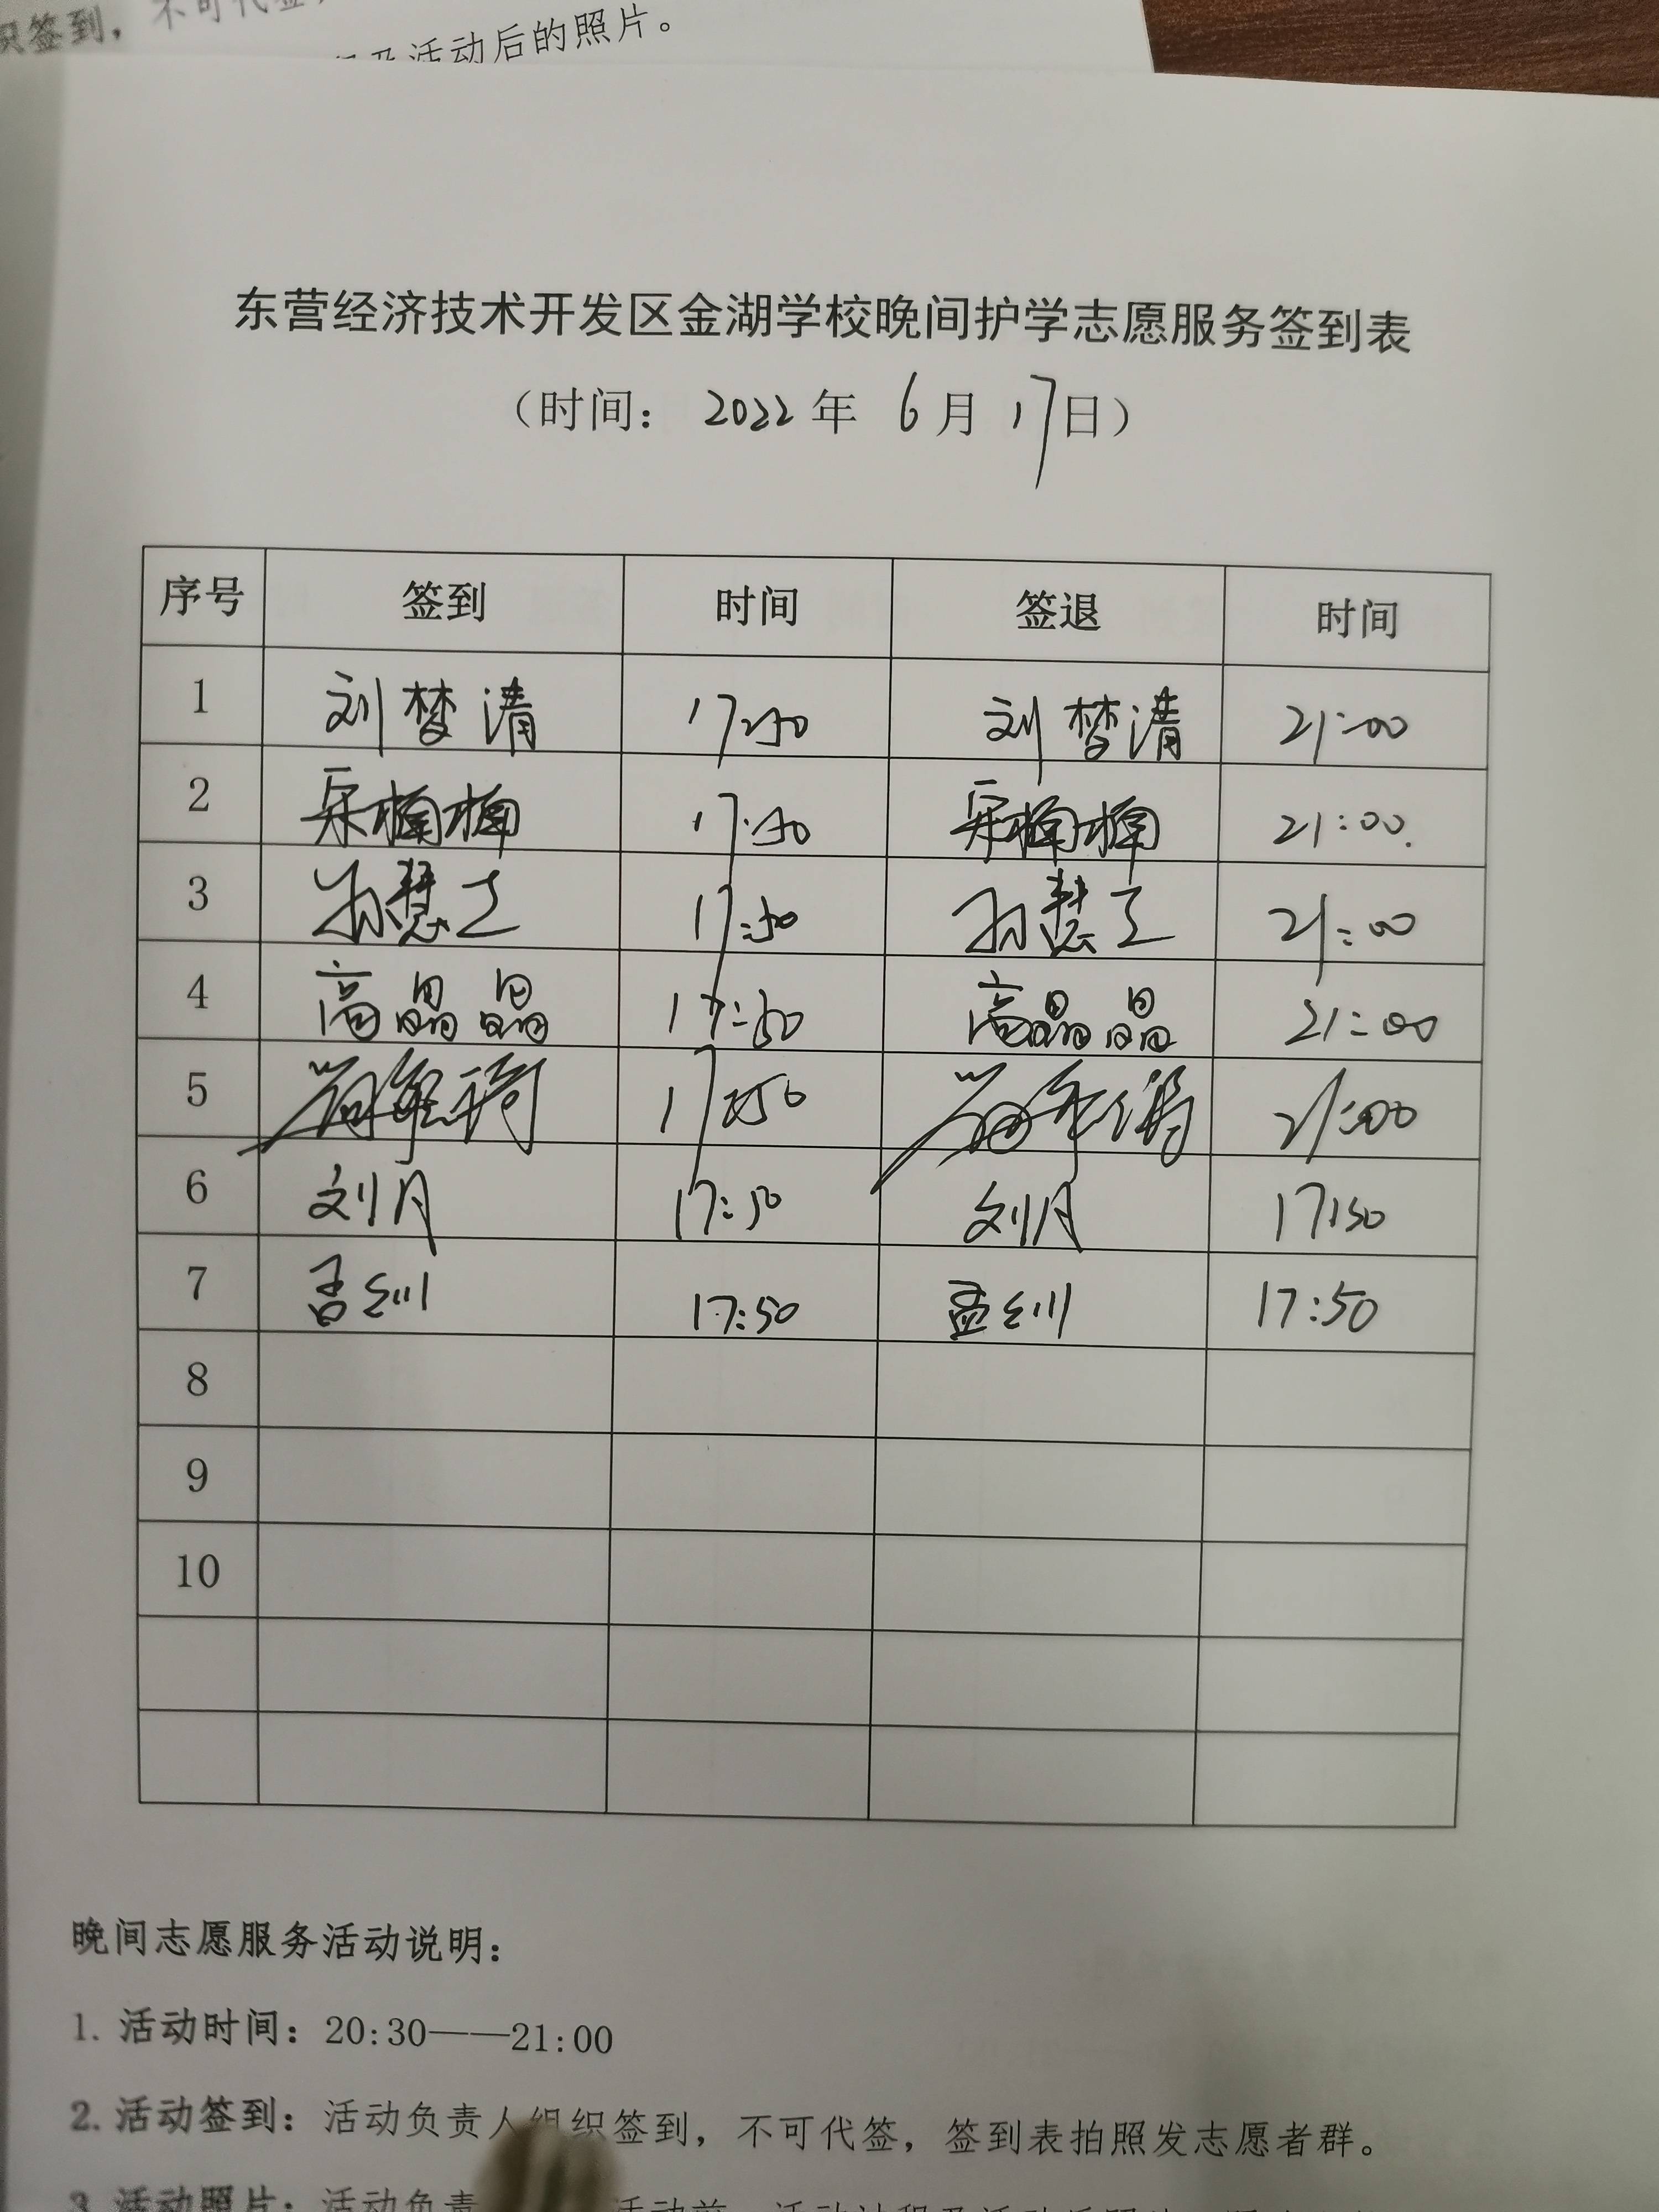 织签到，不可代签，
及活动后的照片。
东营经济技术开发区金湖学校晚间护学志愿服务签到表
（时间： 2022 年 6 月 17 日）
序号 签到 时间 签退 时间
1 刘梦清 17:50 刘梦清 21:00
2 宋楠楠 17:50 宋楠楠 21:00.
3 孙慧之 17:50 孙慧之 21:00
4 高晶晶 17:50 高晶晶 21:00
5 17:50 21:00
6 刘月 17:50 刘月 17:50
7 孟钏 17:50 孟钏 17:50
8
9
10
晚间志愿服务活动说明：
1. 活动时间：20:30——21:00
2. 活动签到：活动负责人组织签到，不可代签，签到表拍照发志愿者群。
3. 活动照片：活动负责 活动前、活动过程及活动后照片